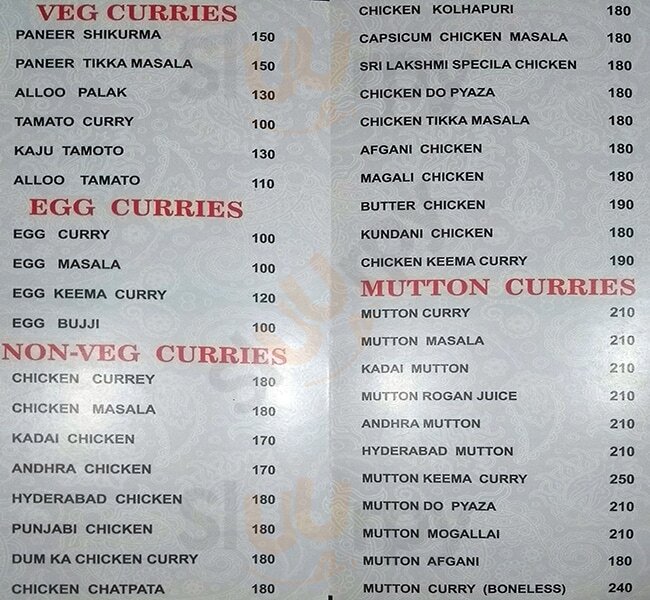 VEG CURRIES
PANEER SHIKURMA 150
PANEER TIKKA MASALA 150
ALLOO PALAK 130
TAMATO CURRY 100
KAJU TAMOTO 130
ALLOO TAMATO 110
EGG CURRIES
EGG CURRY 100
EGG MASALA 100
EGG KEEMA CURRY 120
EGG BUJJI 100
NON-VEG CURRIES
CHICKEN CURREY 180
CHICKEN MASALA 180
KADAI CHICKEN 170
ANDHRA CHICKEN 170
HYDERABAD CHICKEN 180
PUNJABI CHICKEN 180
DUM KA CHICKEN CURRY 180
CHICKEN CHATPATA 180
CHICKEN KOLHAPURI 180
CAPSICUM CHICKEN MASALA 180
SRI LAKSHMI SPECILA CHICKEN 180
CHICKEN DO PYAZA 180
CHICKEN TIKKA MASALA 180
AFGANI CHICKEN 180
MAGALI CHICKEN 180
BUTTER CHICKEN 190
KUNDANI CHICKEN 180
CHICKEN KEEMA CURRY 190
MUTTON CURRIES
MUTTON CURRY 210
MUTTON MASALA 210
KADAI MUTTON 210
MUTTON ROGAN JUICE 210
ANDHRA MUTTON 210
HYDERABAD MUTTON 210
MUTTON KEEMA CURRY 250
MUTTON DO PYAZA 210
MUTTON MOGALLAI 210
MUTTON AFGANI 180
MUTTON CURRY (BONELESS) 240